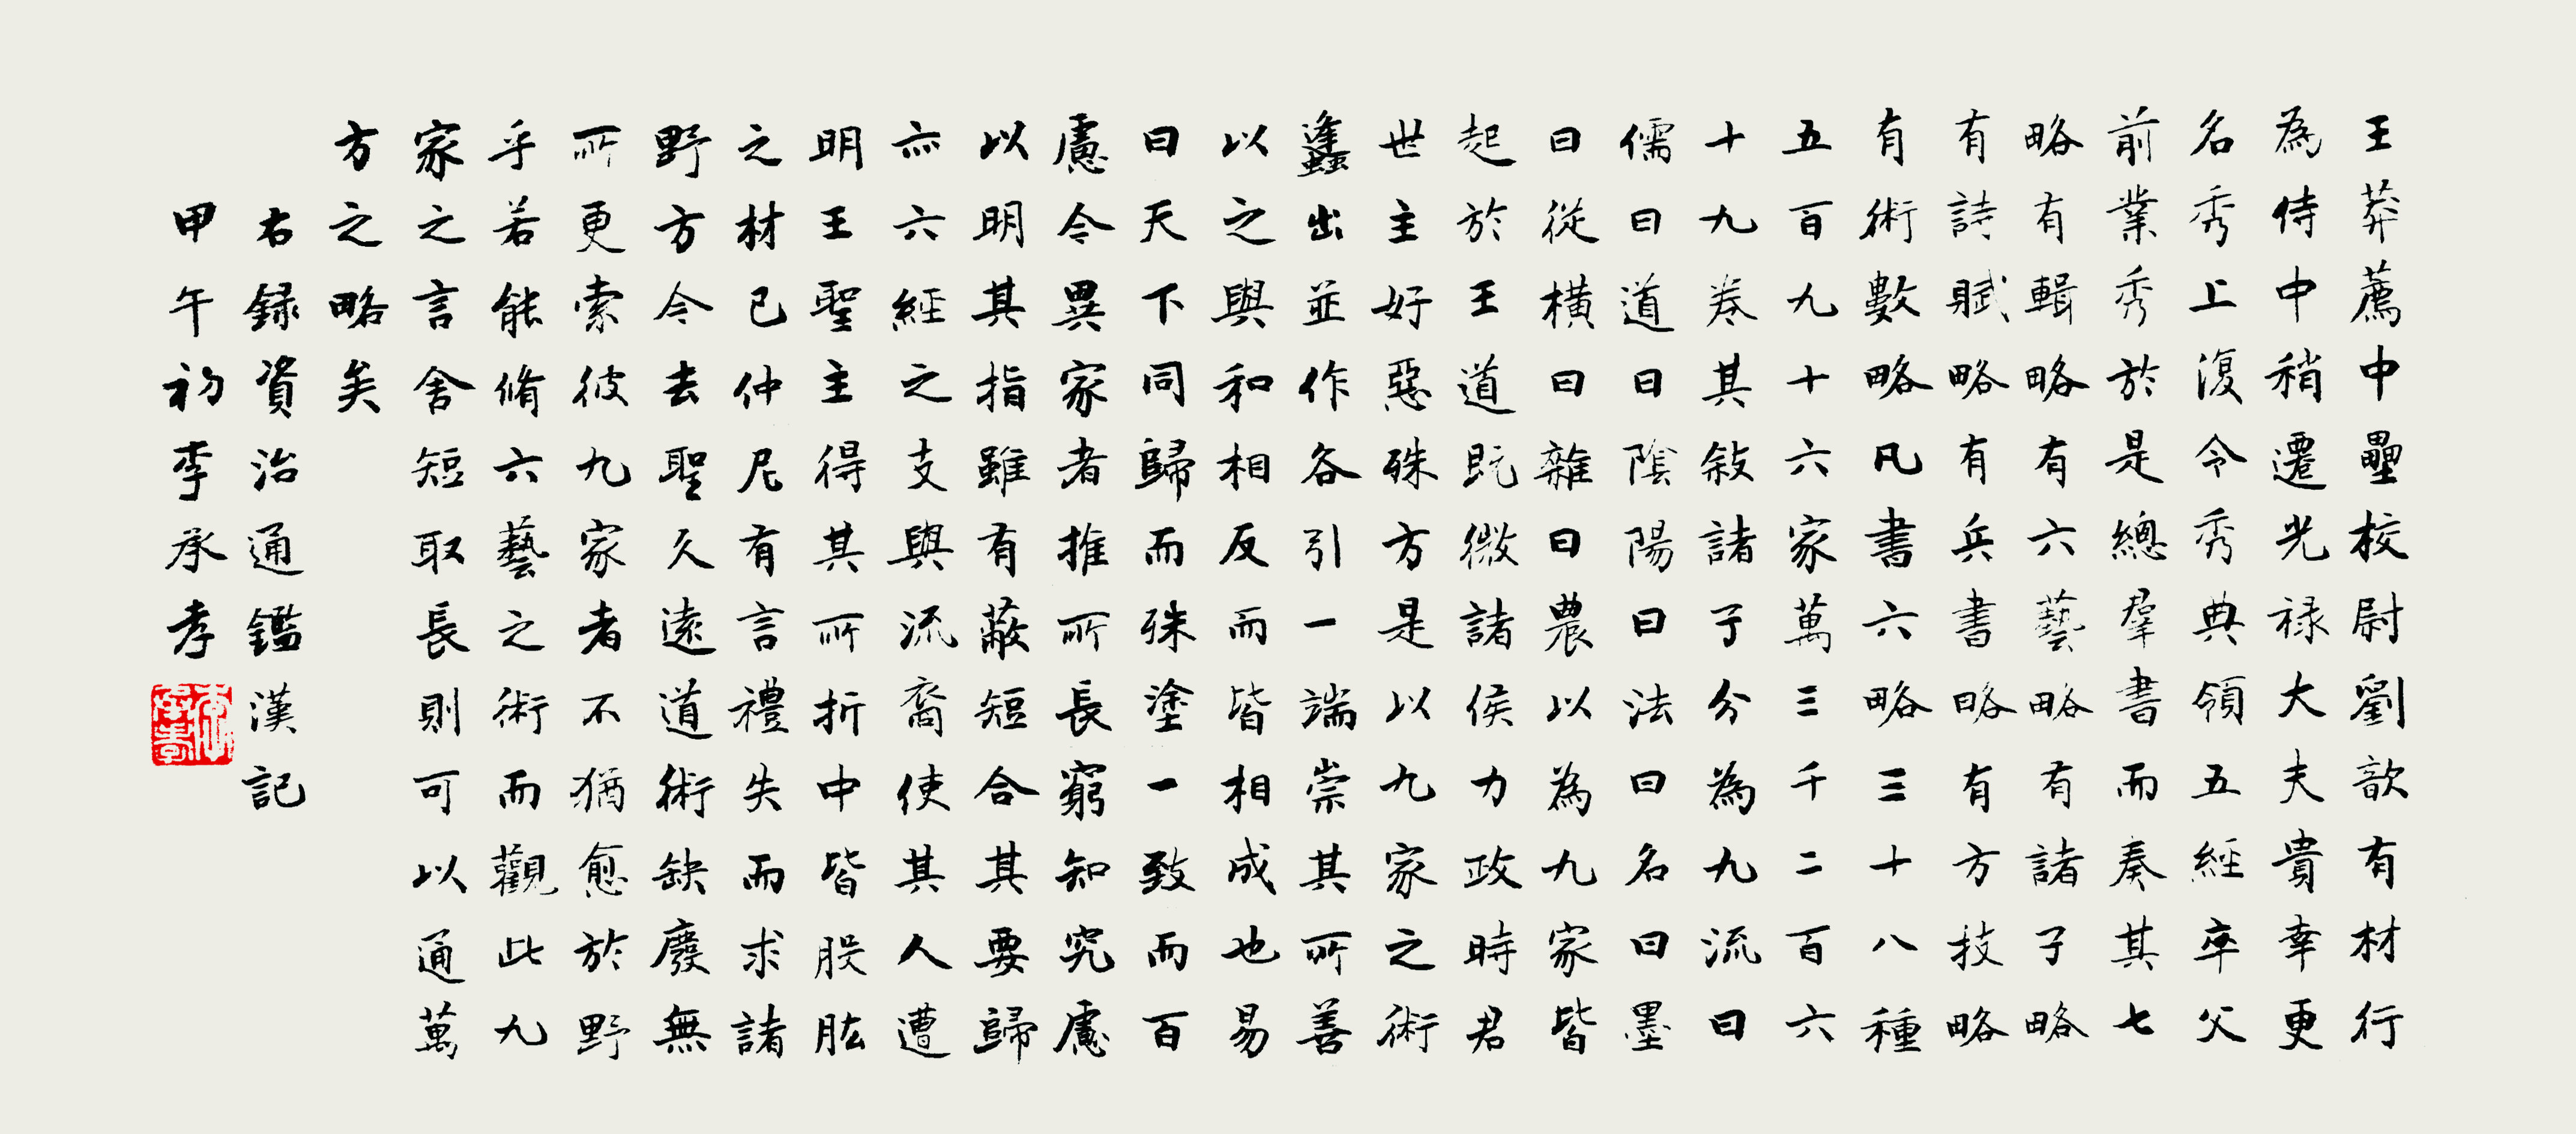 王莽薦中壘校尉劉歆有材行
為侍中稍遷光祿大夫貴幸更
名秀上復令秀典領五經卒父
前業秀於是總羣書而奏其七
略有輯略有六藝略有諸子略
有詩賦略有兵書略有方技略
有術數略凡書六略三十八種
五百九十六家萬三千二百六
十九卷其敘諸子分為九流曰
儒曰道曰陰陽曰法曰名曰墨
曰從橫曰雜曰農以為九家皆
起於王道既微諸侯力政時君
世主好惡殊方是以九家之術
蠭出並作各引一端崇其所善
以之與和相反而皆相成也易
曰天下同歸而殊塗一致而百
慮令異家者推所長窮知究慮
以明其指雖有蔽短合其要歸
亦六經之支與流裔使其人遭
明王聖主得其所折中皆股肱
之材已仲尼有言禮失而求諸
野方今去聖久遠道術缺廢無
所更索彼九家者不猶愈於野
乎若能脩六藝之術而觀此九
家之言舍短取長則可以通萬
方之略矣
右録資治通鑑漢記
甲午初李承孝